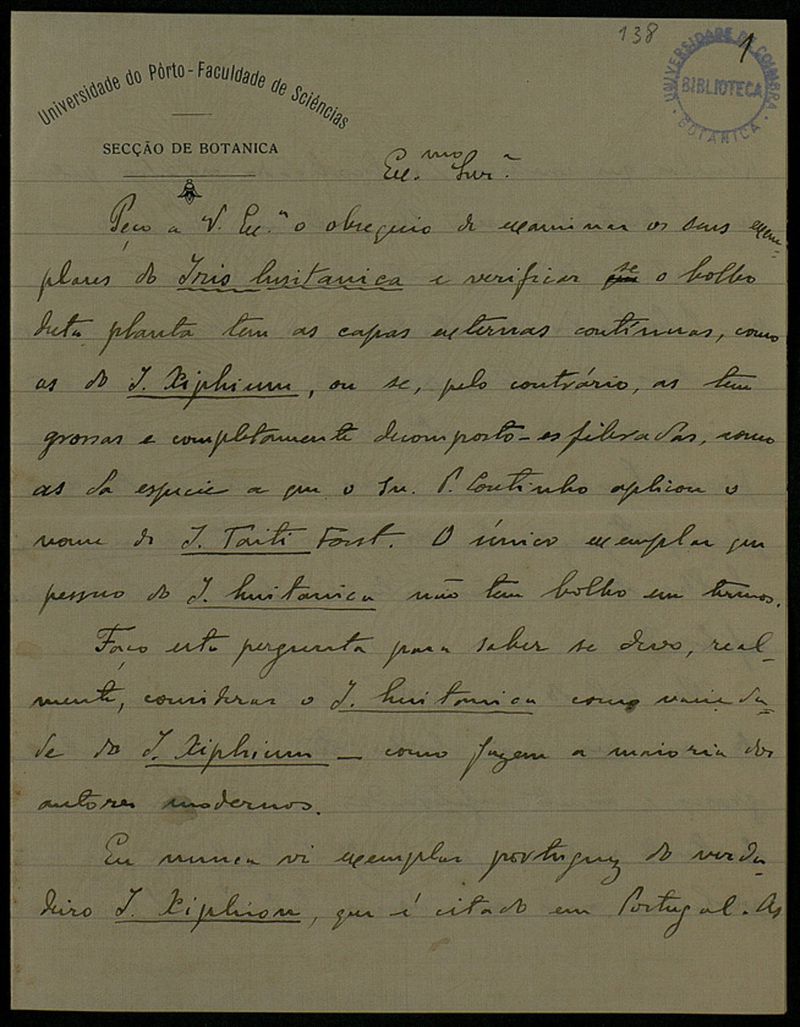 138
1
UNIVERSIDADE DE COIMBRA
BIBLIOTECA
BOTANICA
Universidade do Pôrto - Faculdade de Sciências
SECÇÃO DE BOTANICA
Ex.mo Snr.
Peço a V. Ex.a o obsequio de examinar os seus exem-
plares do Iris lusitanica e verificar se o bolbo
desta planta tem as capas externas contínuas, como
as do I. Xiphium, ou se, pelo contrário, as tem
grossas e completamente decomposto-esfibradas, como
as da especie a que o Sr. P. Coutinho aplicou o
nome de I. Taiti Forst. O único exemplar que
possuo do I. lusitanica não tem bolbo em termos.
Faço esta pergunta para saber se devo, real-
mente, considerar o I. lusitanica como varieda-
de do I. Xiphium — como fazem a maioria dos
autores modernos.
Eu nunca vi exemplar portuguez do verda-
deiro I. Xiphion, que é citado em Portugal. As